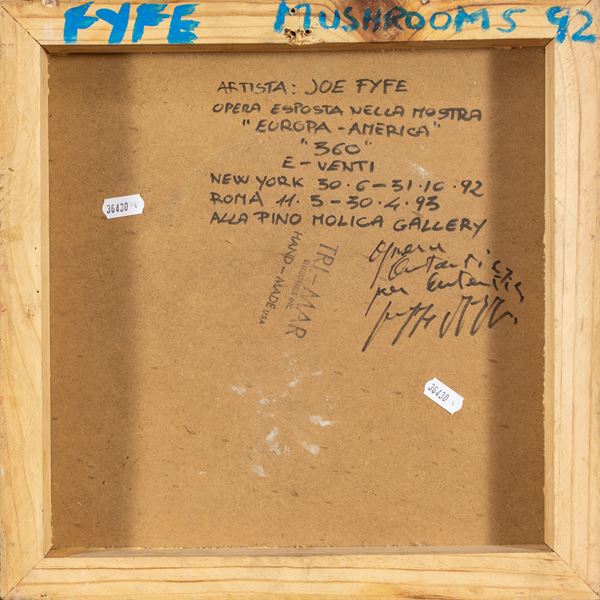 FYFE MUSHROOMS 92
ARTISTA: JOE FYFE
OPERA ESPOSTA NELLA MOSTRA
"EUROPA-AMERICA"
"360"
E-VENTI
NEW YORK 30·6-31·10·92
ROMA 11·3-30·4·93
ALLA PINO MOLICA GALLERY
36430
Opera
per
TRI-MAR
HAND-MADE USA
36430